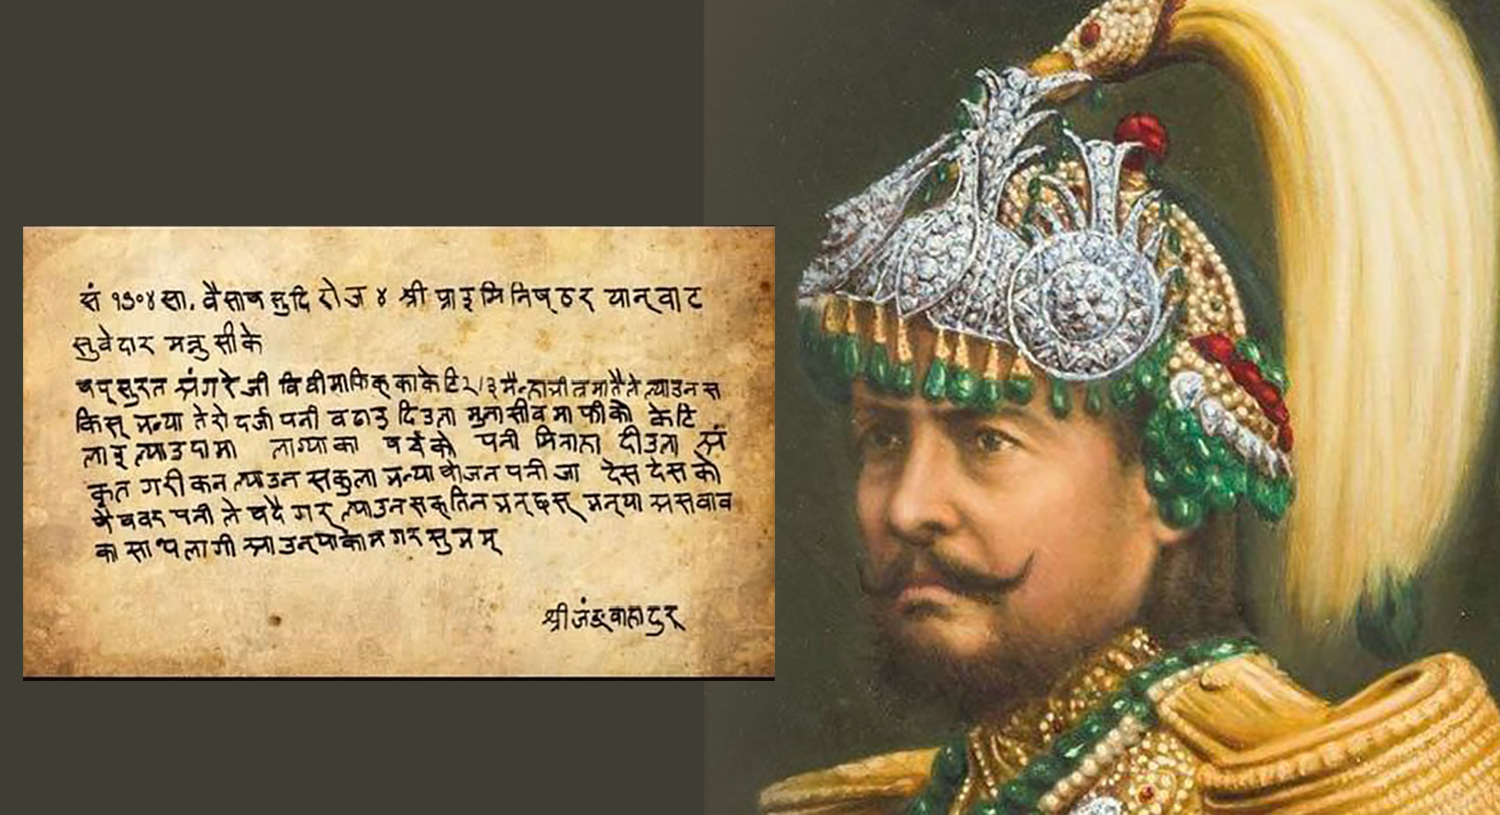 सं १९०४ सा. वैसाष सुदि रोज ४ श्री प्राइमिनिष्ठर यान्वाट
सुवेदार मन्नु सीके
षप्सुरत अंगरेजी विवीमाफिक् काकेटि २।३ मैन्हाभीत्रमा तैले ल्याउन स
किस् भन्या तेरो दर्जा पनी वढाउ दिउला मुनासीव माफीको केटि
लाइ ल्याउदामा लाग्याका षर्चको पनी मिनाहा दीउला अं
कृत गरीकन ल्याउन सकुला भन्या षोजन पनी जा देस देस को
षैषवर पनी ते वदै गर् ल्याउन सक्तिन भन्छस् भन्या असवाव
का साथ लागी आउन्याकाम गर सुभम्
श्री जंङ्वाहादुर्